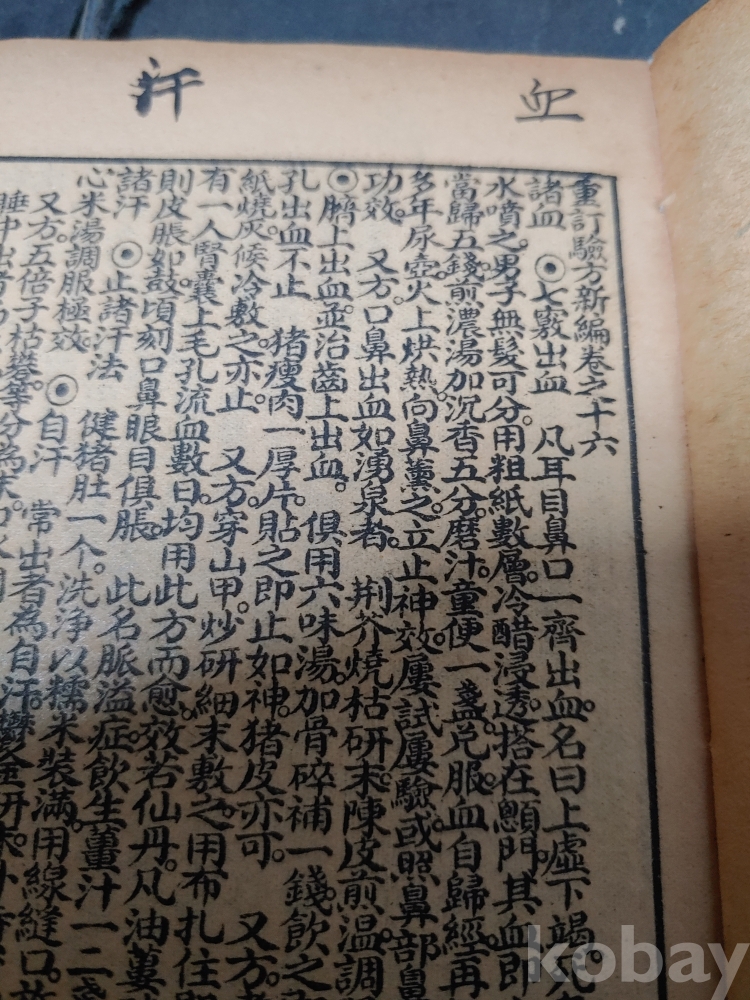 血
汗
重訂驗方新編卷之十六
諸血 ⦿七竅出血 凡耳目鼻口一齊出血。名曰上虛下竭。凡
水噴之。男子無髮可分。用粗紙數層。冷醋浸透。搭在顖門。其血即
當歸五錢。煎濃湯加沉香五分。磨汁童便一盞。兌服。血自歸經。再
多年尿壺。火上烘熱。向鼻薰之。立止神效。屢試屢驗。或照鼻部鼻
功效。 又方。口鼻出血如湧泉者。 荆芥燒枯研末。陳皮煎温調
⦿臍上出血。並治齒上出血。 俱用六味湯。加骨碎補一錢。飲之
孔出血不止 猪瘦肉一厚片。貼之即止如神。猪皮亦可。 又方。
紙燒灰候冷敷之亦止。 又方。穿山甲。炒研細末敷之。用布扎住
有一人腎囊上毛孔流血數日。均用此方而愈。效若仙丹。凡油
則皮脹如鼓。頃刻口鼻眼目俱脹。 此名脈溢症。飲生薑汁一二盞
諸汗 ⦿止諸汗法 健猪肚一个。洗浄以糯米裝滿。用線縫口。
心米湯調服極效。 ⦿自汗 常出者為自汗。鬱金研末。
又方。五倍子枯礬等分為末。
睡中出者為
kobay